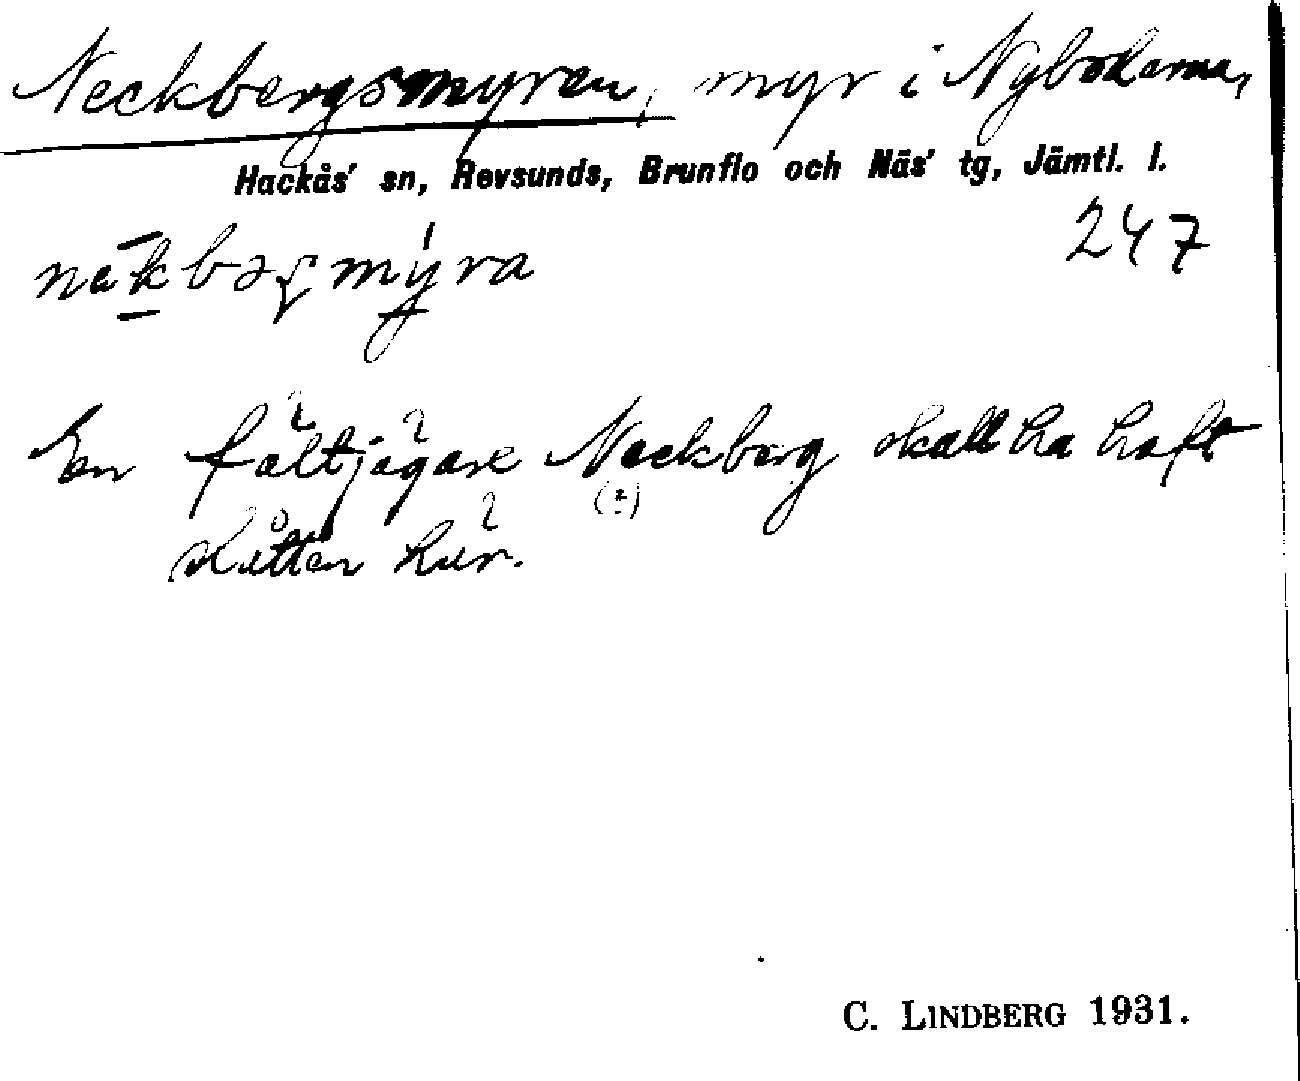 Neckbergsmyren, myr i Nybodarna,
Hackås' sn, Revsunds, Brunflo och Näs' tg, Jämtl. l.
247
En fältjägare Neckberg skall ha haft
(?)
slåtter här.
C. LINDBERG 1931.